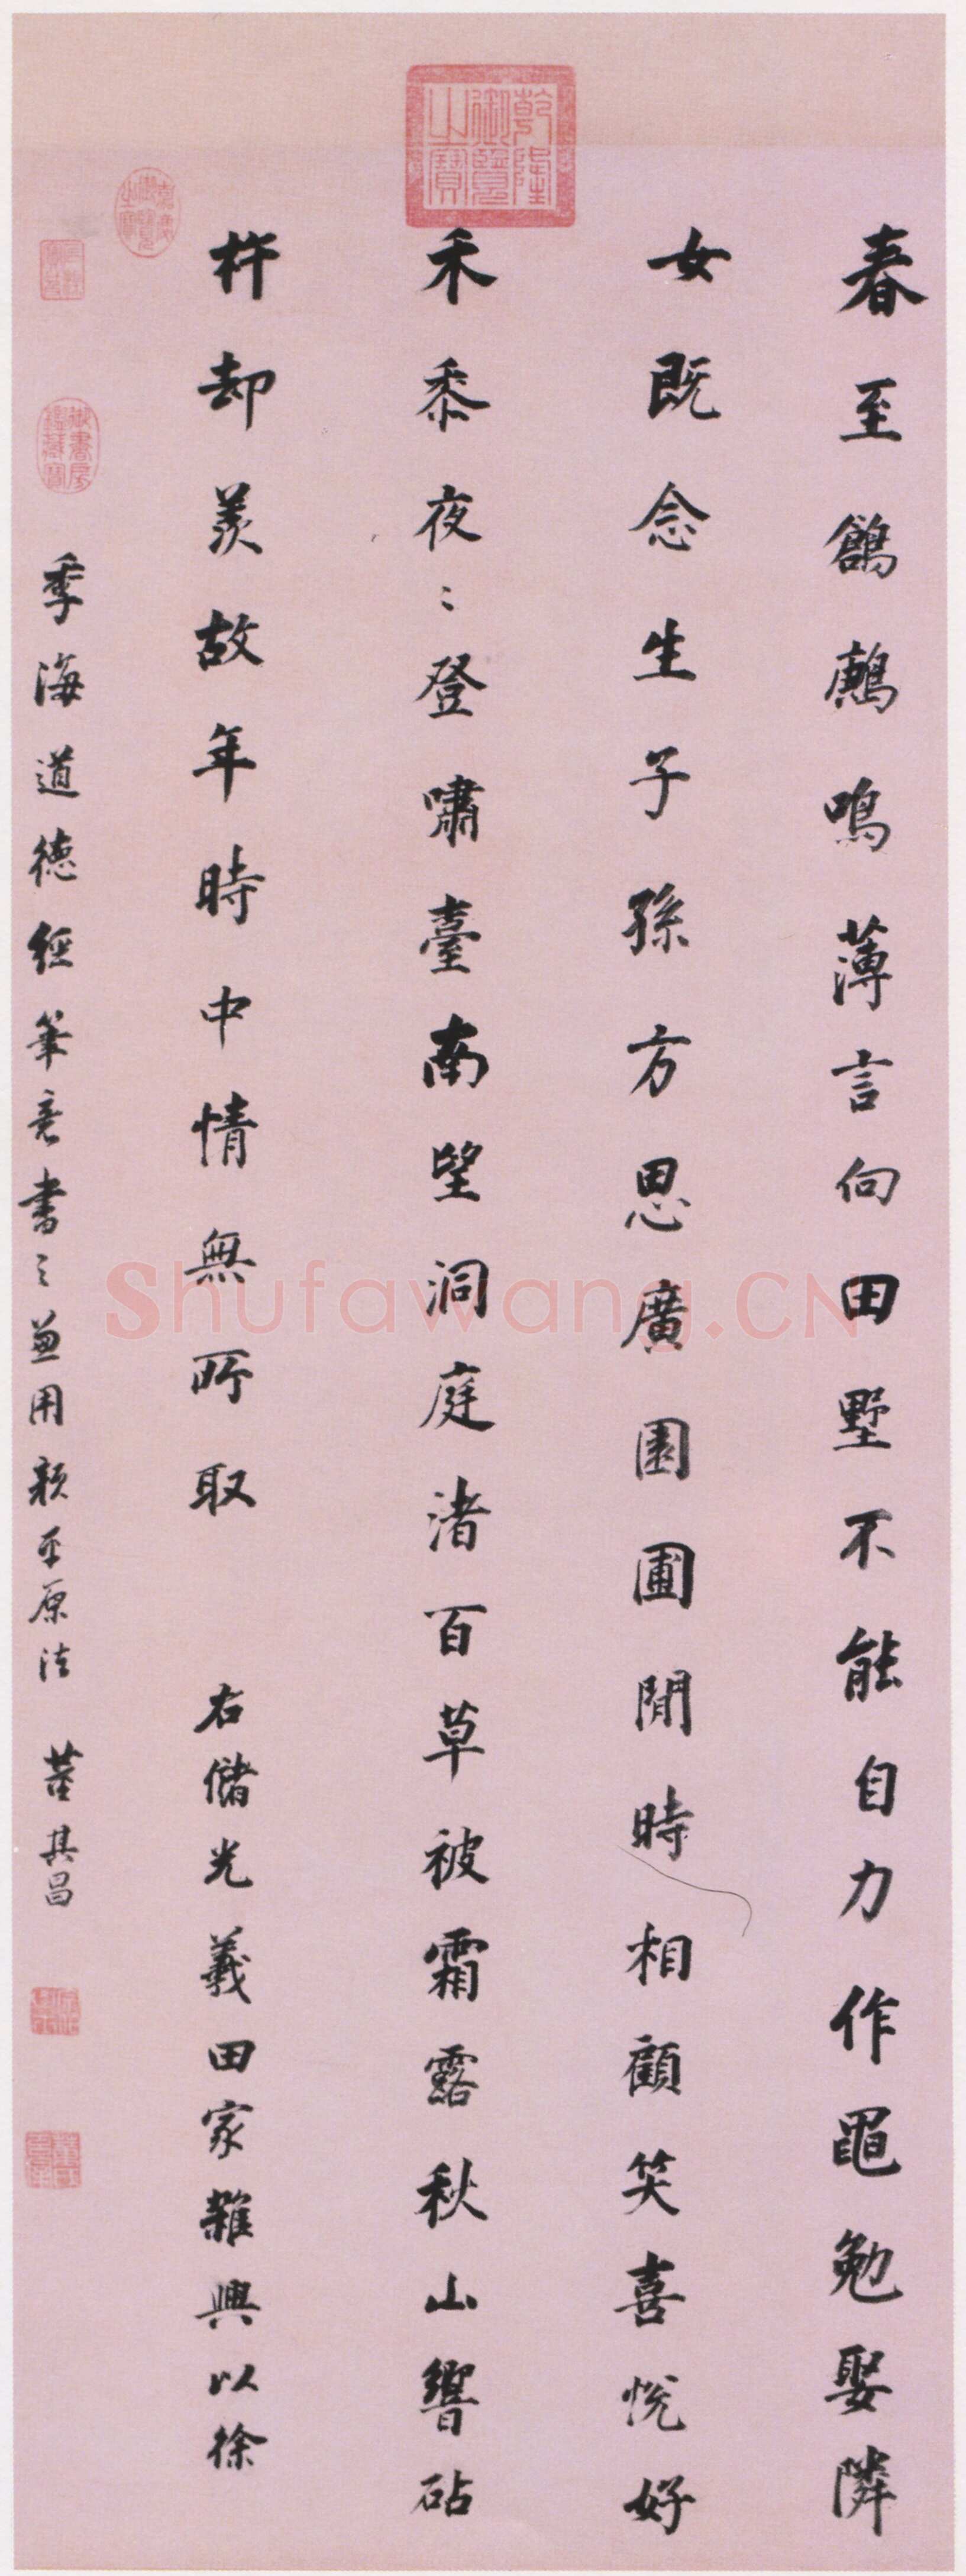 春至鶬鶊鳴薄言向田墅不能自力作黽勉娶隣
女既念生子孫方思廣園圃閒時相顧笑喜悅好
禾黍夜〻登嘯臺南望洞庭渚百草被霜露秋山響砧
杵却羨故年時中情無所取
右儲光羲田家雜興以徐
季海道德經筆意書之兼用顏平原法
董其昌
乾隆御覽之寶
嘉慶御覽之寶
御書房鑑藏寶
Shufawang.CN